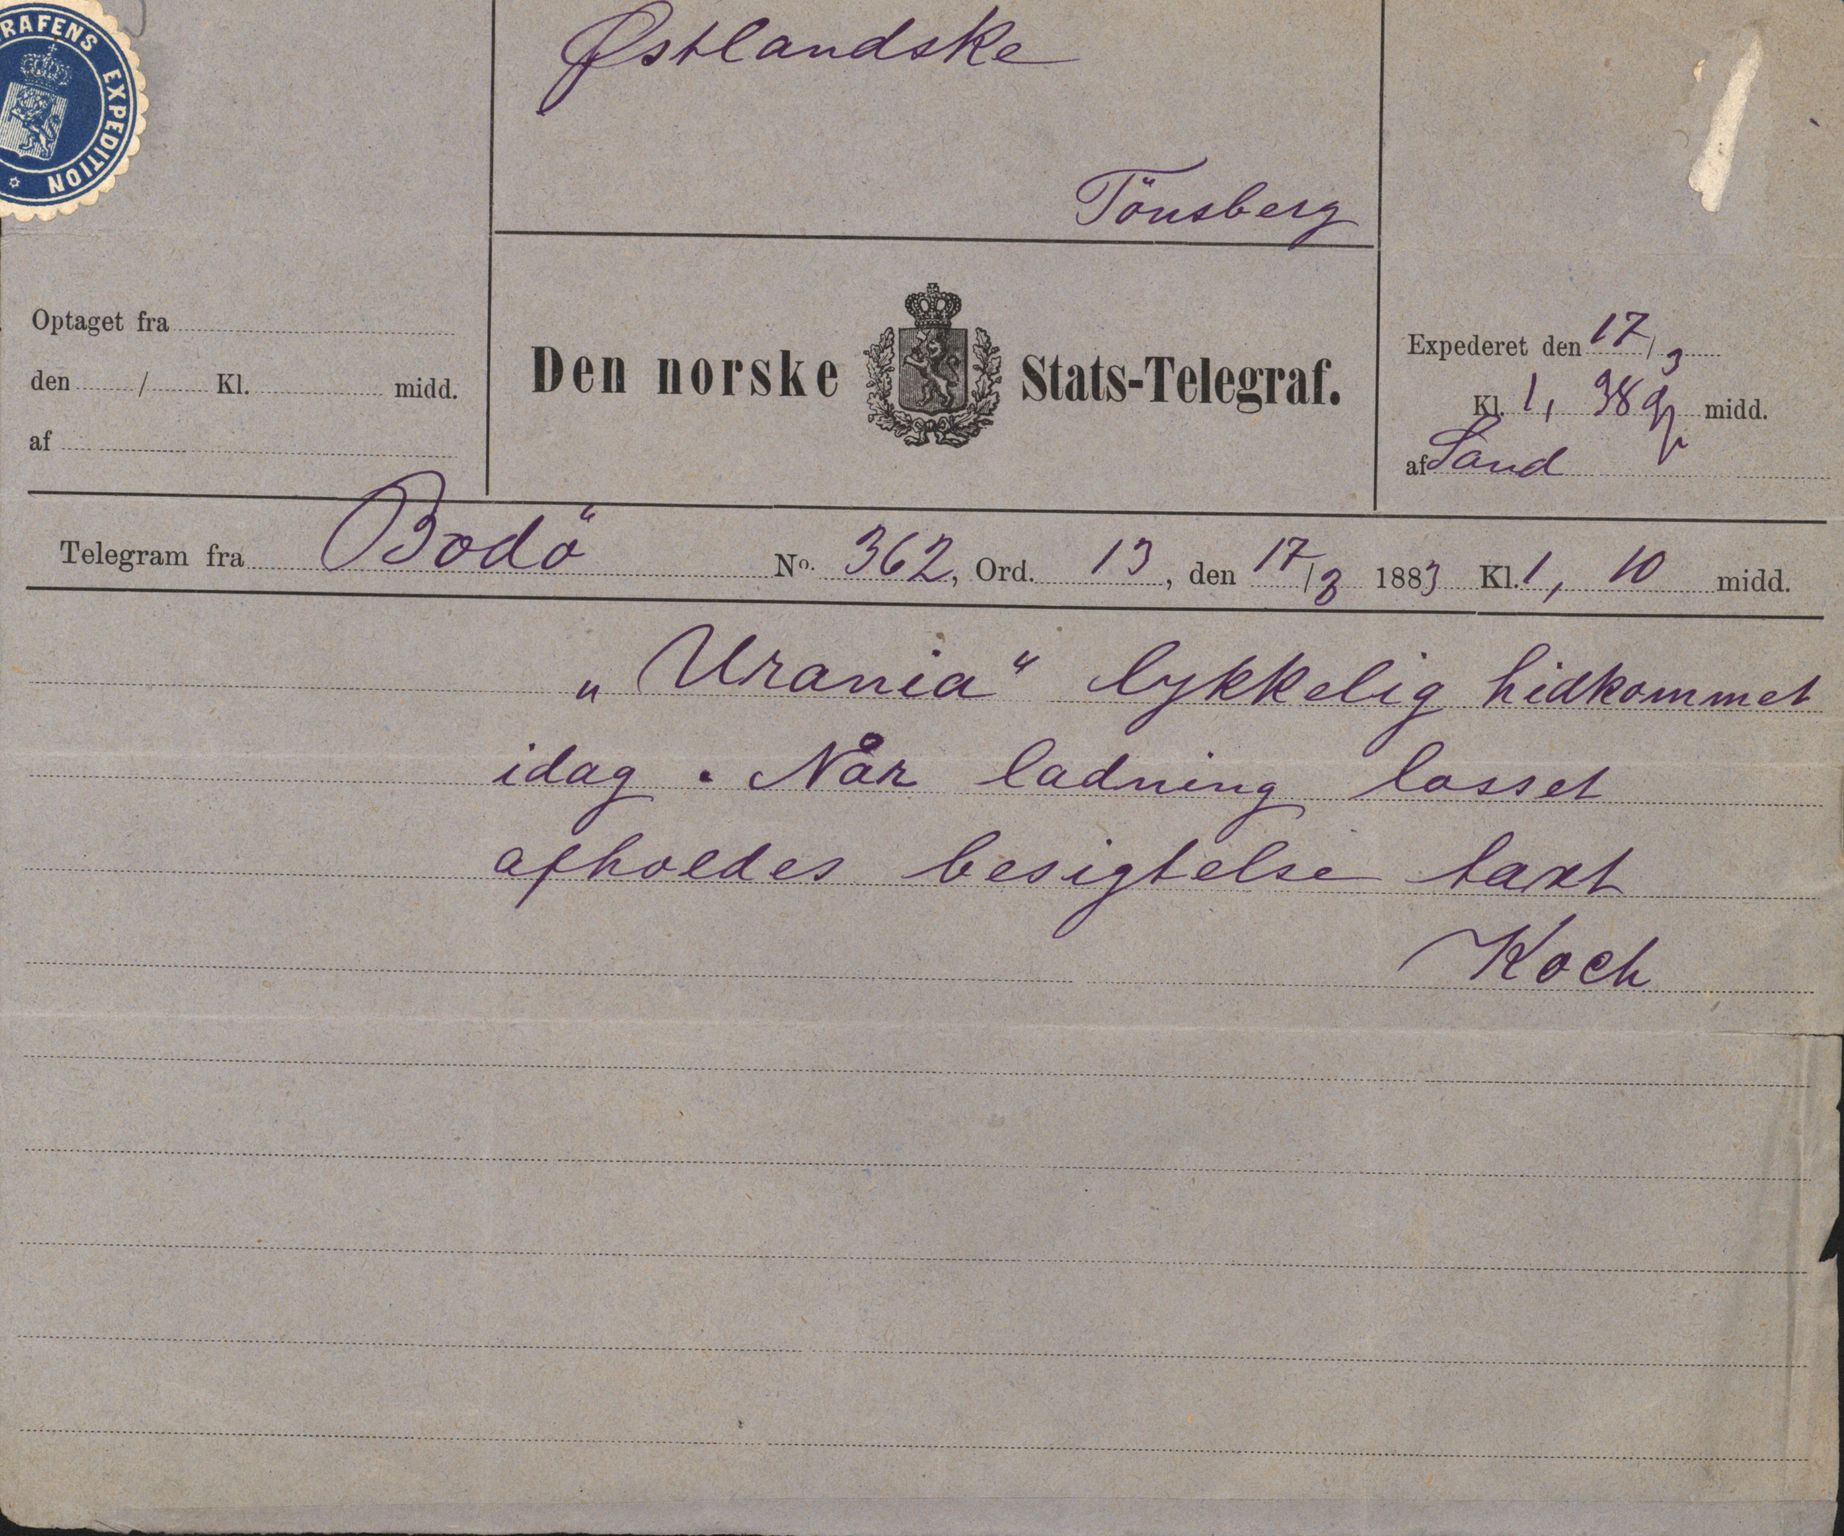 RAFENS EXPEDITION
Østlandske
Tönsberg
Optaget fra
den / Kl. midd.
af
Den norske Stats-Telegraf.
Expederet den 17/3
Kl. 1, 38 midd.
af Sand
Telegram fra Bodö No. 362, Ord. 13, den 17/3 1883 Kl. 1, 10 midd.
„Urania“ lykkelig hidkommet
idag. Når ladning losset
afholdes besigtelse taxt
Koch